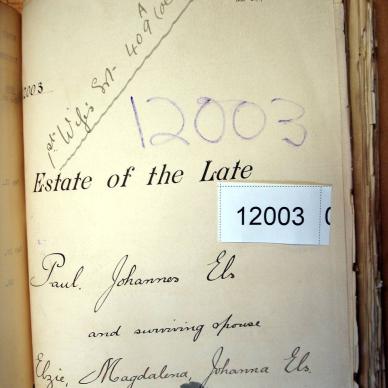 1st Wife's Est. 409
A
2003
12003
Estate of the Late
12003
Paul. Johannes Els
and surviving spouse
Elzie, Magdalena, Johanna Els.